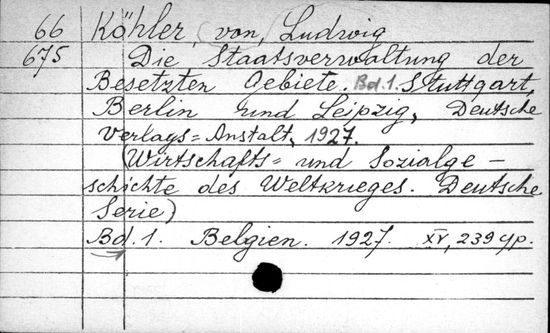 66 Köhler, von, Ludwig
675 Die Staatsverwaltung der
Besetzten Gebiete. Bd.1. Stuttgart,
Berlin und Leipzig, Deutsche
Verlags=Anstalt, 1927.
(Wirtschafts= und Sozialge-
schichte des Weltkrieges. Deutsche
Serie)
Bd.1. Belgien. 1927. XV, 239 cp.